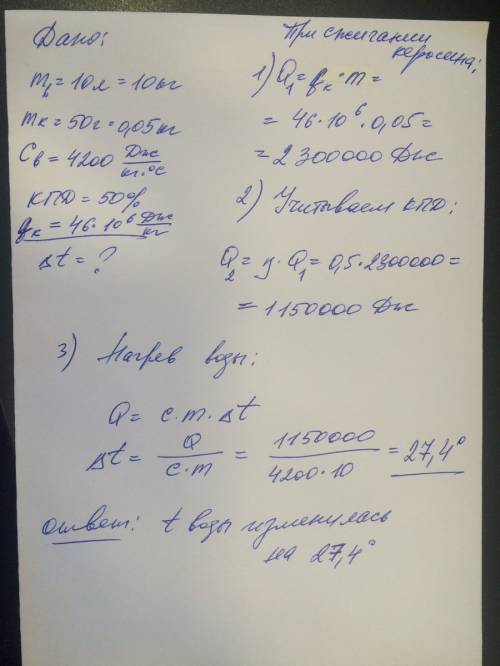 Дано:
mв = 10л = 10кг
mк = 50г = 0,05кг
Cв = 4200 Дж/кг·°С
КПД = 50%
qк = 46·10⁶ Дж/кг
Δt = ?
При сжигании
керосина:
1) Q₁ = qк·m =
= 46·10⁶·0,05 =
= 2300000 Дж
2) Учитываем КПД:
Q₂ = η·Q₁ = 0,5·2300000 =
= 1150000 Дж
3) Нагрев воды:
Q = c·m·Δt
Δt = Q/c·m = 1150000/4200·10 = 27,4°
ответ: t воды изменилась
на 27,4°